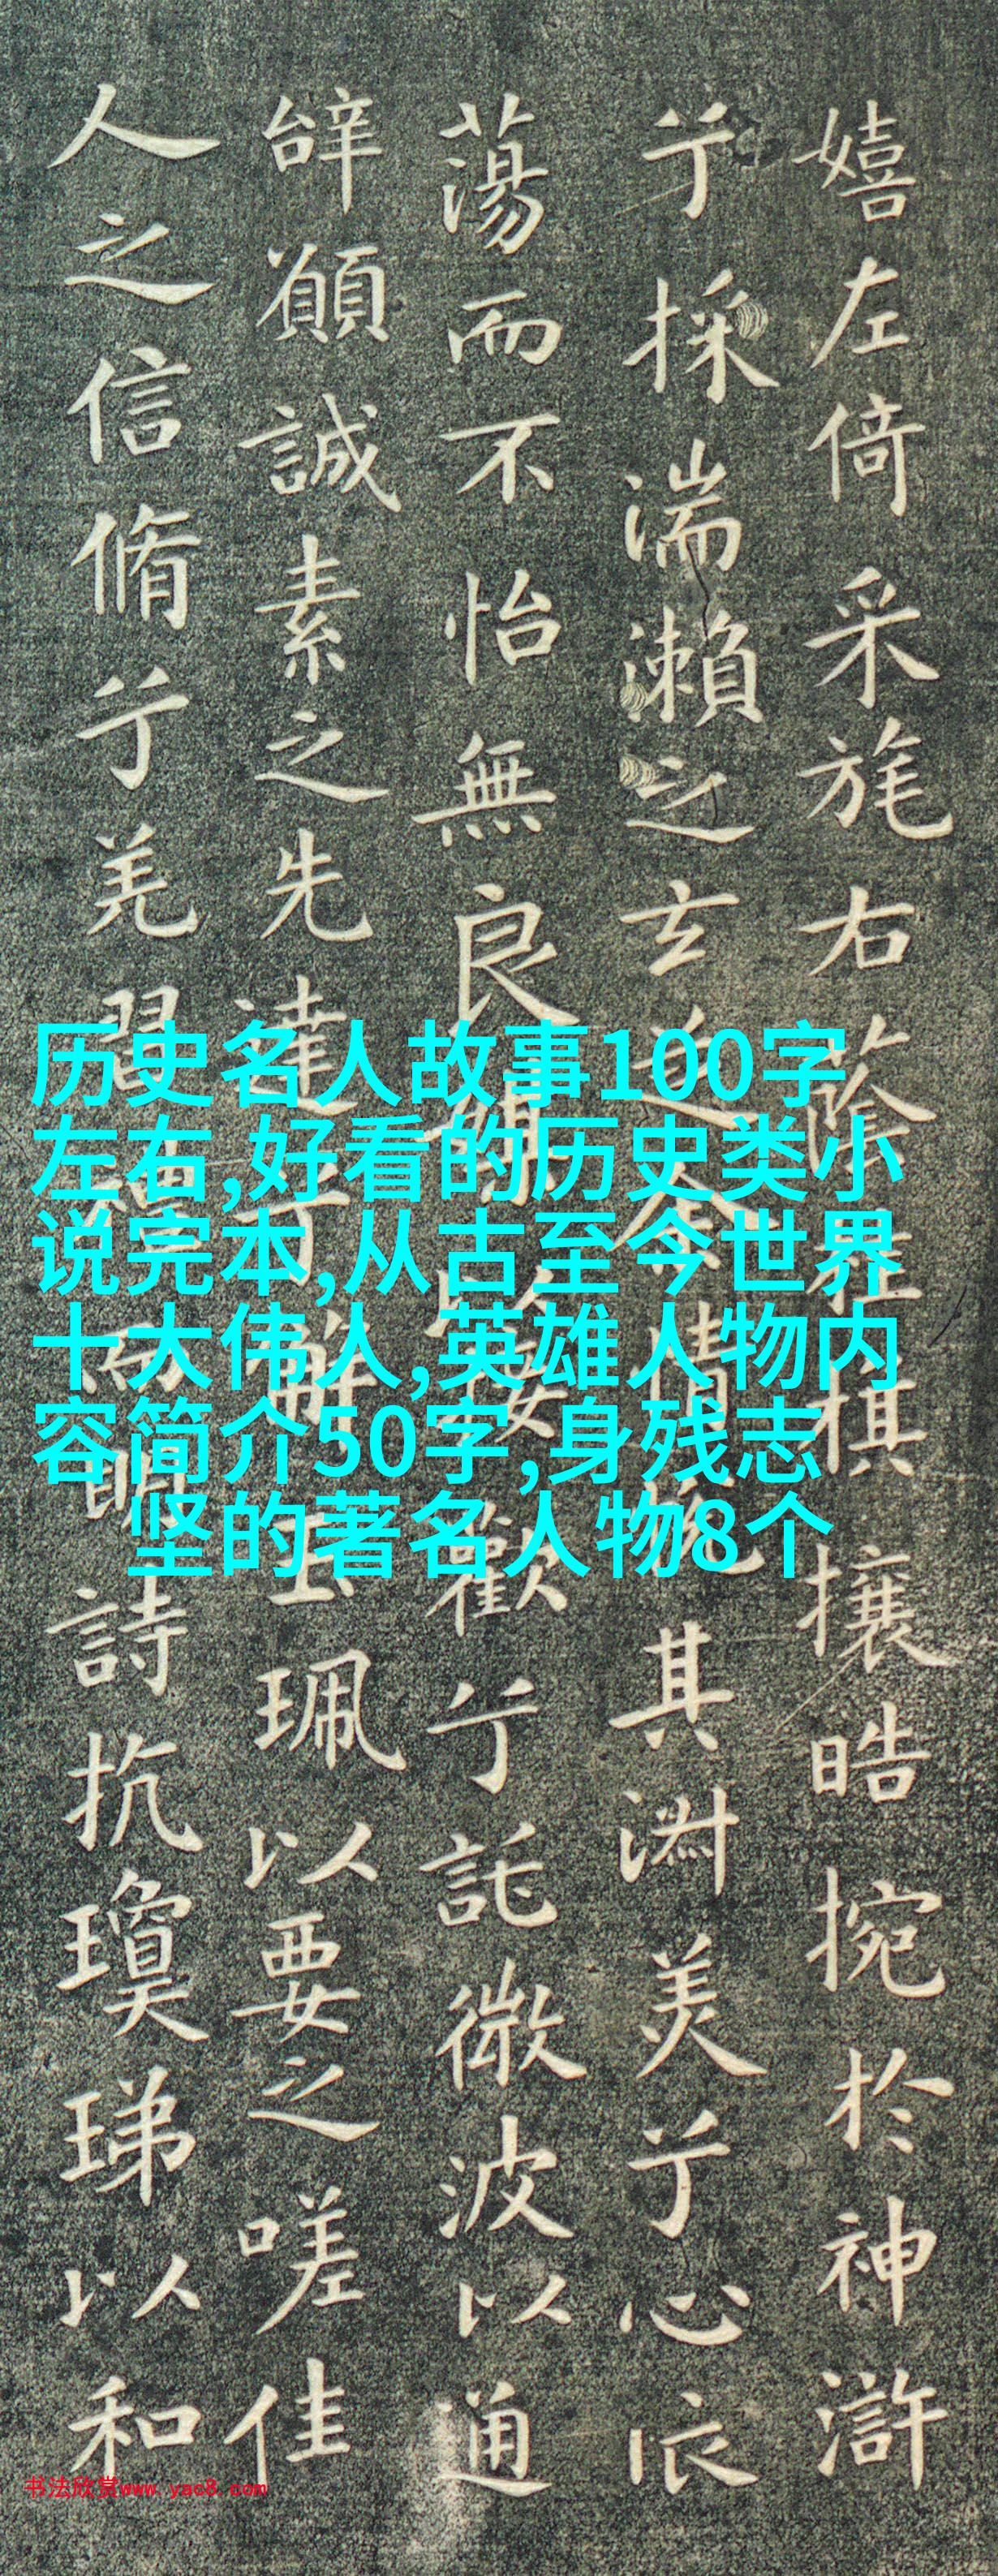 嬉左倚采旄右蔭桂旗攘皓捥於神滸
兮採湍瀨之玄芝余情悅其淑美兮心振
蕩而不怡無良媒以接歡兮託微波以通
辭願誠素之先達兮解玉珮以要之嗟佳
人之信脩兮羌習禮而明詩抗瓊珶以和
历史名人故事100字
左右,好看的历史类小
说完本,从古至今世界
十大伟人,英雄人物内
容简介50字,身残志
坚的著名人物8个
书法欣赏www.yac8.com